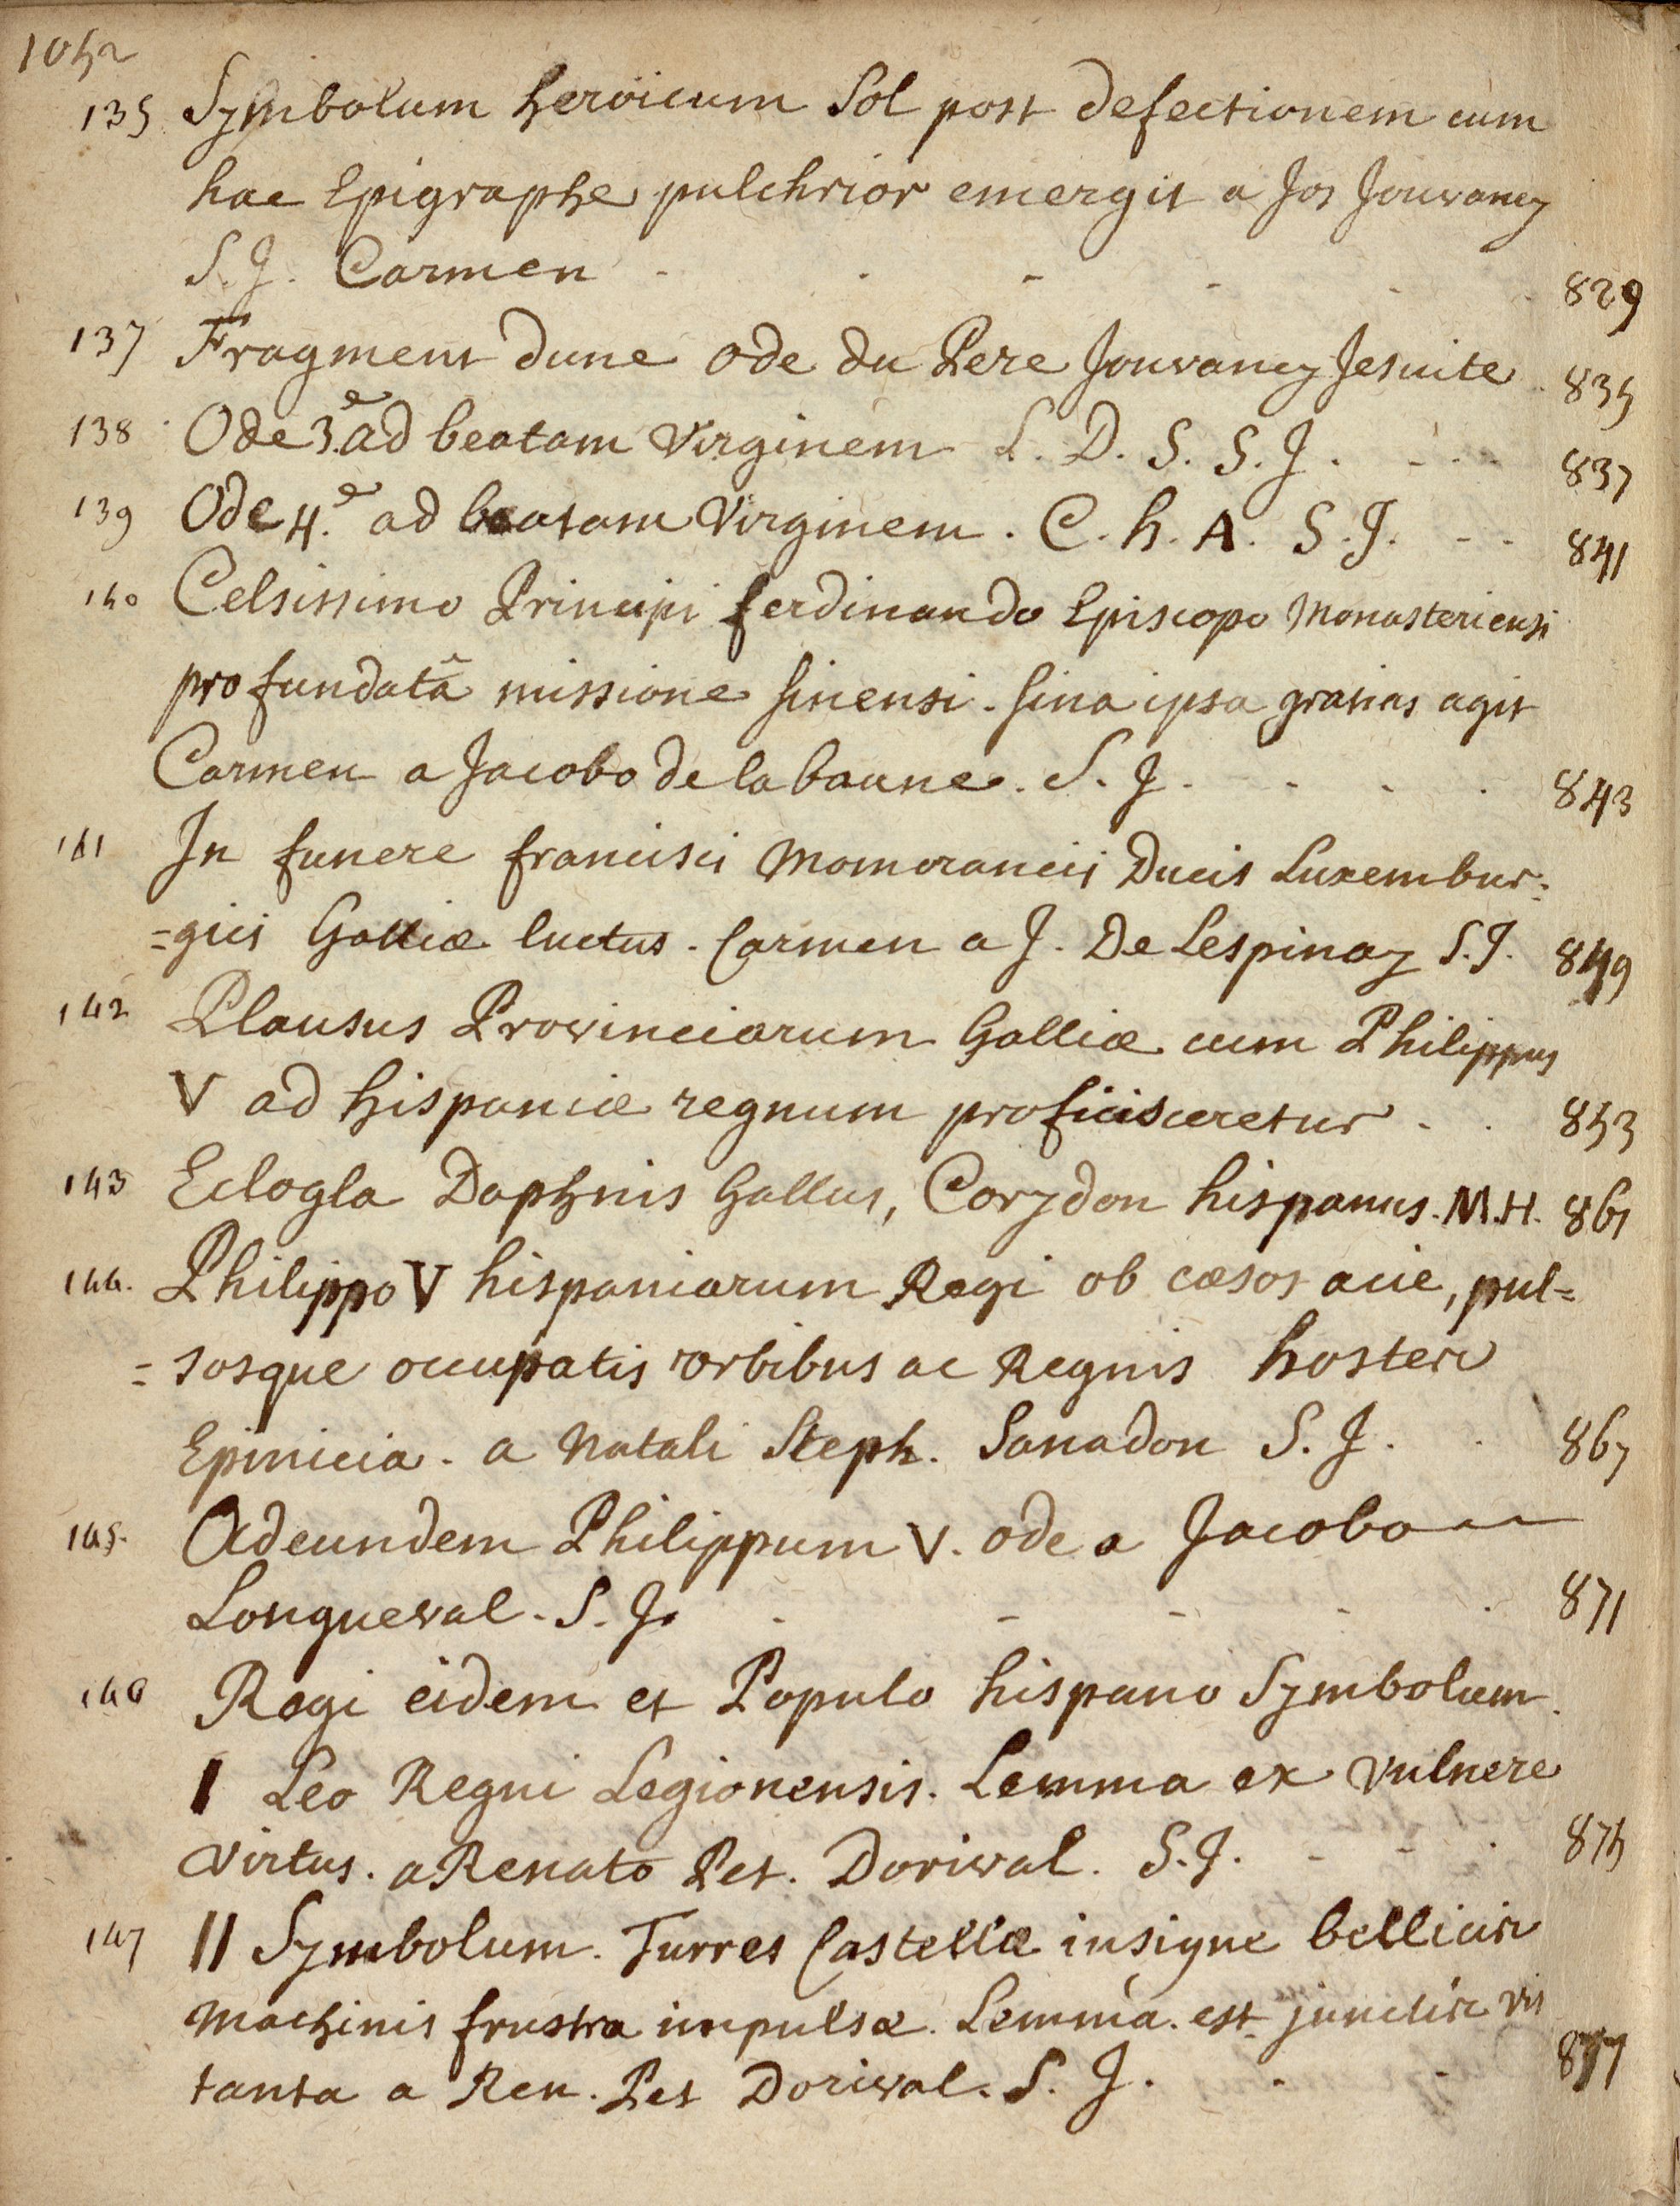 1052
135 Symbolum heroicum Sol post defectionem cum
hac Epigraphe pulchrior emergit a Jos Jouvancy
S. J. Carmen - - - - - - 829
137 Fragment dune ode du Pere Jouvancy Jesuite 835
138 Ode 3.a ad beatam Virginem L. D. S. S. J. - - - 837
139 Ode 4.a ad beatam Virginem. C. h. A. S. J. - - 841
140 Celsissimo Principi ferdinando Episcopo Monasteriensi
pro fundatâ missione sinensi. Sina ipsa gratias agit
Carmen a Jacobo de la baune. S. J. - - - 843
141 In funere francisci Momorancii Ducis Luxembur=
=gici Galliæ luctus. Carmen a J. De Lespinay S. J. 849
142 Plausus Provinciarum Galliæ cum Philippus
V ad hispaniæ regnum proficisceretur - - 853
143 Eclogla Daphnis Gallus, Corydon hispanus. M. H. 861
144. Philippo V hispaniarum Regi ob cæsos acie, pul=
=sosque occupatis orbibus ac Regnis hostes
Epinicia. a Natali Steph. Sanadon S. J. - 867
145. Ad eundem Philippum V. ode a Jacobo
Longueval. S. J. - - - - - 871
146 Regi eidem et Populo hispano Symbolum.
I Leo Regni Legionensis. Lemma ex vulnere
virtus. a Renato Pet. Dorival. S. J. - - - 875
147 II Symbolum. Turres Castellæ insigne bellicis
machinis frustra impulsæ. Lemma. est junctis vis
tanta a Ren. Pet Dorival. S. J. - - 877